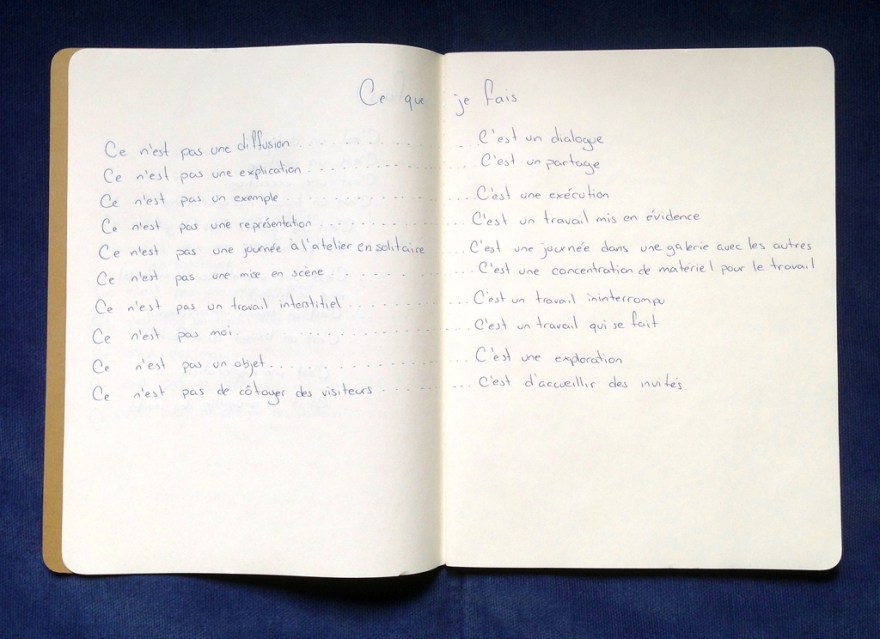 Ce que je fais
Ce n'est pas une diffusion ............ C'est un dialogue
Ce n'est pas une explication ............ C'est un partage
Ce n'est pas un exemple ............ C'est une exécution
Ce n'est pas une représentation ............ C'est un travail mis en évidence
Ce n'est pas une journée à l'atelier en solitaire ... C'est une journée dans une galerie avec les autres
Ce n'est pas une mise en scène ............ C'est une concentration de matériel pour le travail
Ce n'est pas un travail interstitiel ............ C'est un travail ininterrompu
Ce n'est pas moi ............ C'est un travail qui se fait
Ce n'est pas un objet ............ C'est une exploration
Ce n'est pas de côtoyer des visiteurs ............ C'est d'accueillir des invités